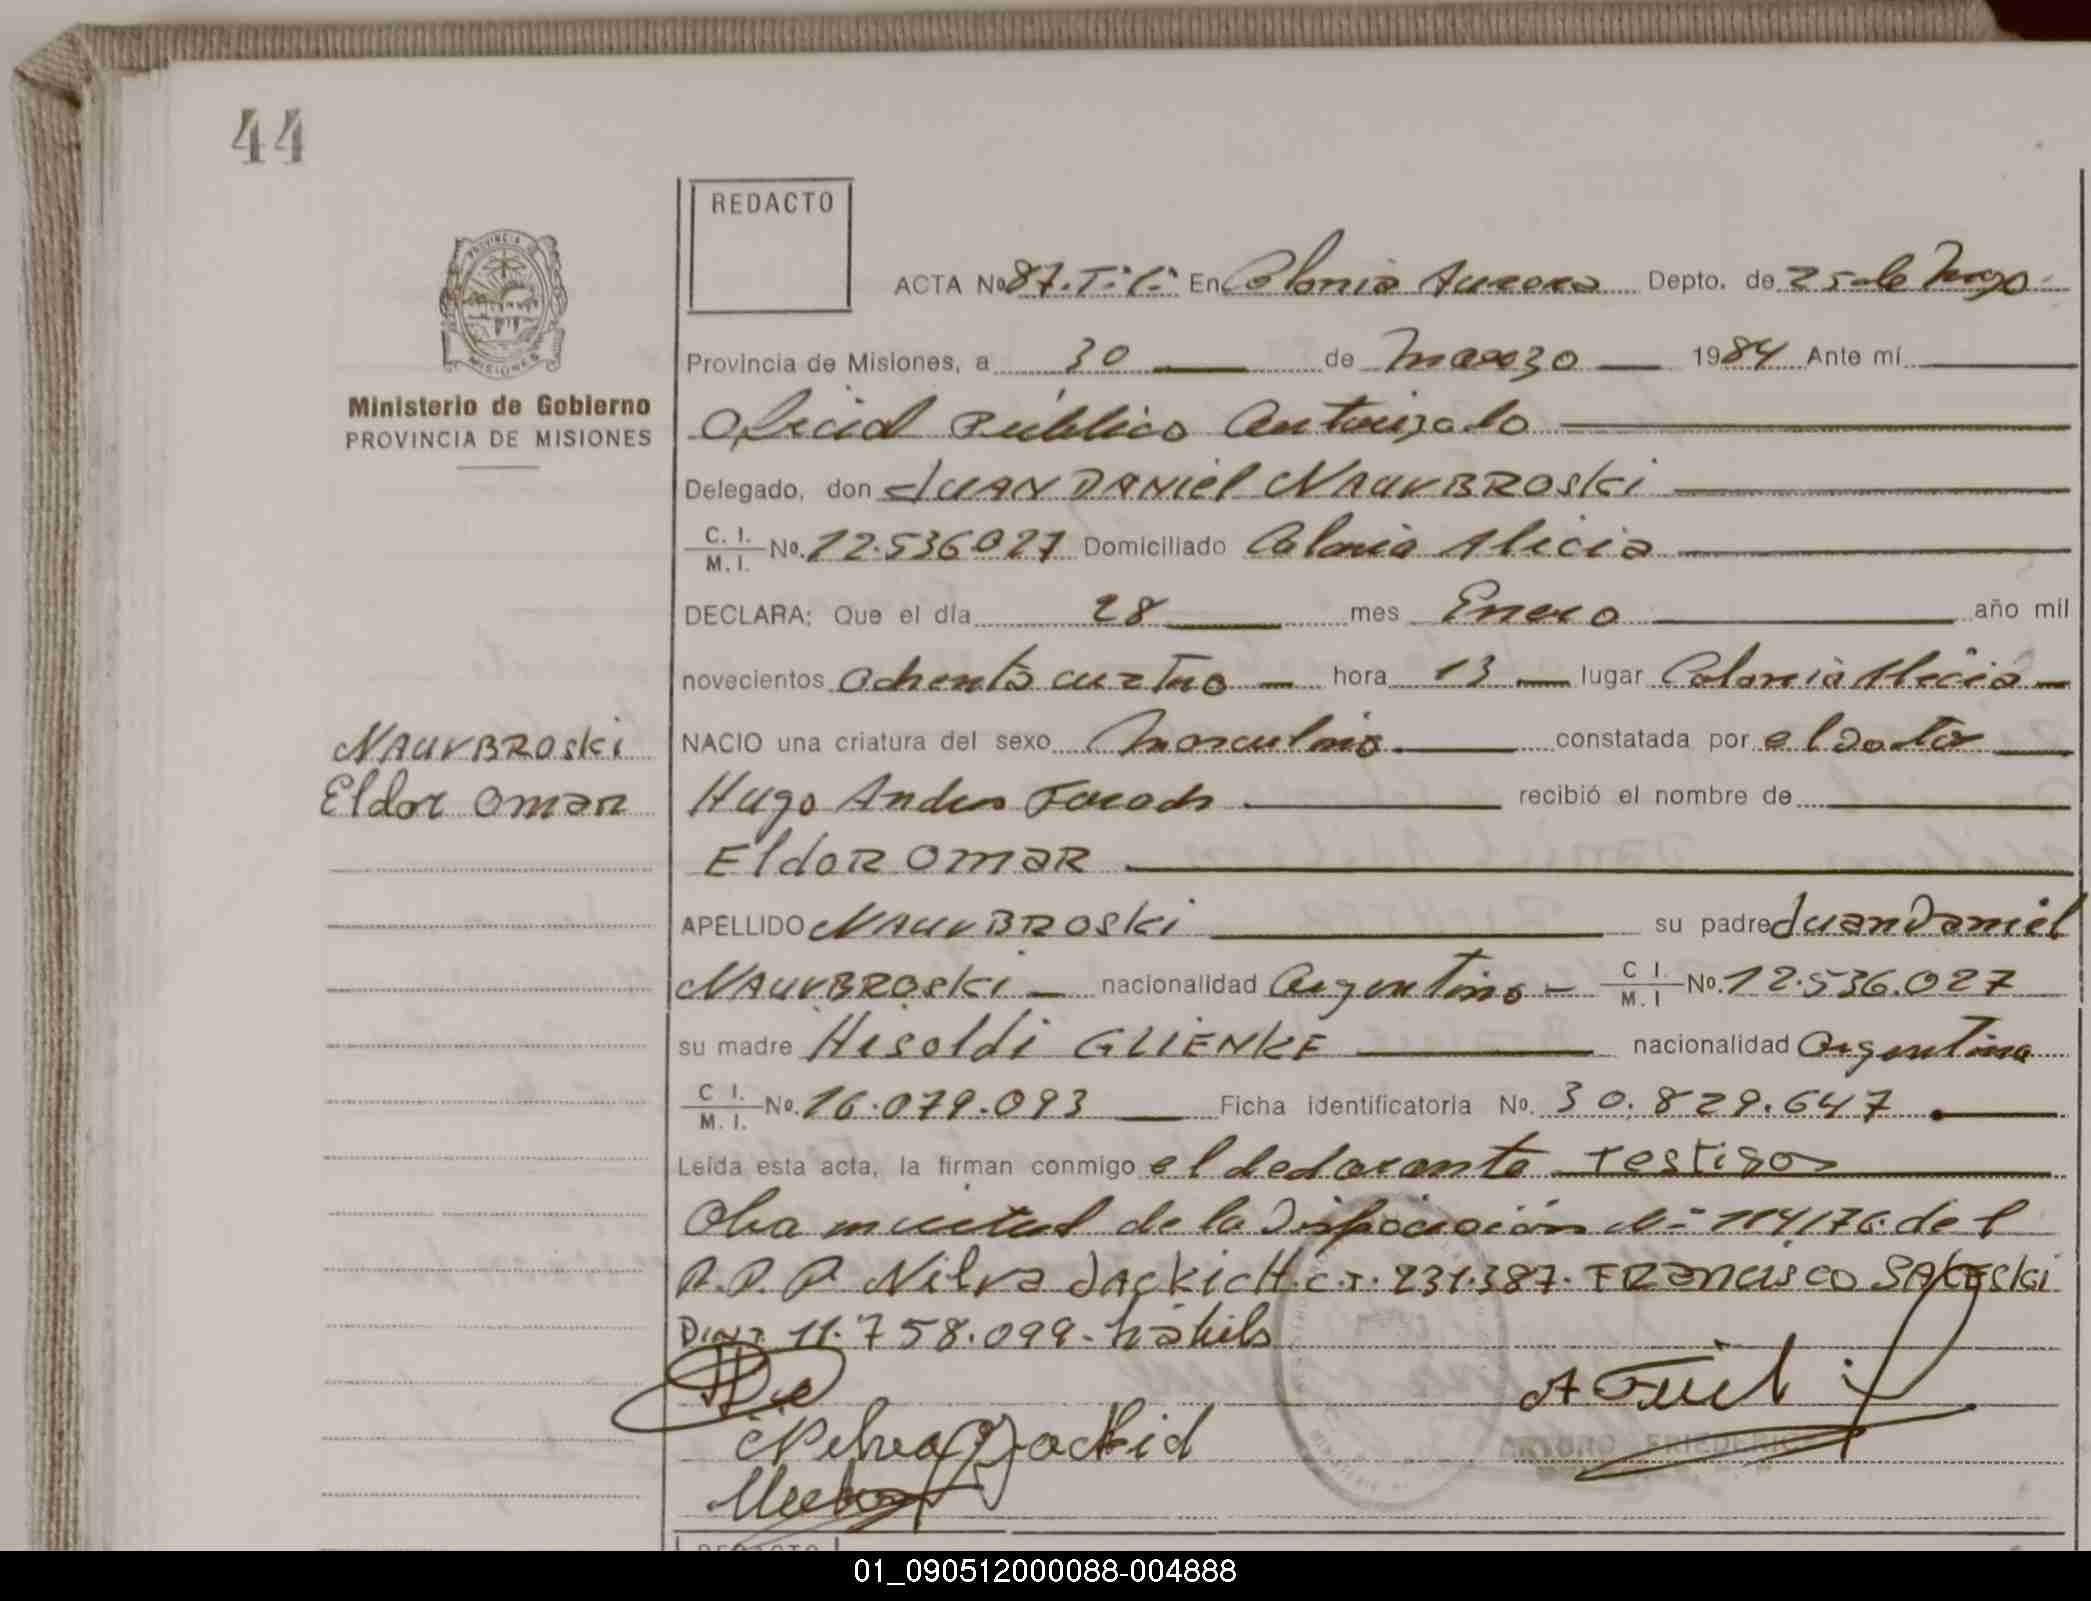 44
REDACTO
PROVINCIA DE
MISIONES
ACTA No 87.T.I. En Colonia Aurora Depto. de 25 de Mayo
Provincia de Misiones, a 30 de Marzo 1984 Ante mí
Ministerio de Gobierno
PROVINCIA DE MISIONES
Oficial Público Autorizado
Delegado, don JUAN DANIEL NAUVBROSKI
C. I. M. I. No. 12.536027 Domiciliado Colonia Alicia
DECLARA: Que el día 28 mes Enero año mil
novecientos ochenta cuatro hora 13 lugar Colonia Alicia
NAUVBROSKI
Eldor Omar
NACIO una criatura del sexo Masculino constatada por el Doctor
Hugo Andres recibió el nombre de
ELDOR OMAR
APELLIDO NAUVBROSKI su padre Juan Daniel
NAUVBROSKI nacionalidad Argentino C I. M. I No. 12.536.027
su madre Hisoldi GLIENKE nacionalidad Argentina
C I. M. I. No. 16.079.093 Ficha identificatoria No. 30.829.647
Leída esta acta, la firman conmigo el declarante Testigos
de la Disposición Nº 114/76 del
R.P.P. Nilva JACKICH C.I. 231.387. FRANCISCO SAKESKI
D.N.I. 11.758.099- hábiles
ARTURO FRIEDERIC
REDACTO
01_090512000088-004888